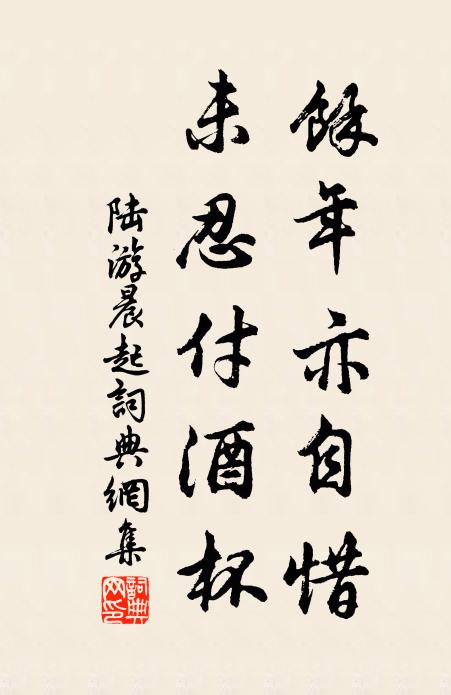 餘年亦自惜
未忍付酒杯
陆游晨起詞典網集
詞典網印